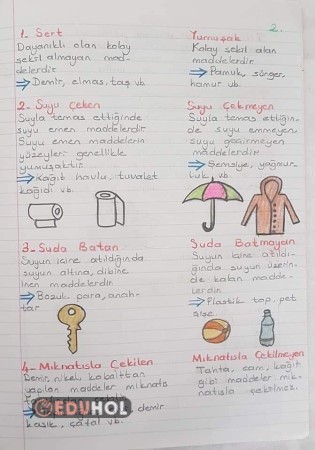 2.
1. Sert
Dayanıklı olan kolay
şekil almayan mad-
delerdir.
Demir, elmas, taş vb.
Yumuşak
Kolay şekil alan
maddelerdir.
Pamuk, sünger,
hamur vb.
2- Suyu Çeken
Suyla temas ettiğinde
suyu emen maddelerdir.
Suyu emen maddelerin
yüzeyleri genellikle
yumuşaktır.
Kağıt havlu, tuvalet
kağıdı vb.
Suyu Çekmeyen
Suyla temas ettiğin-
de suyu emmeyen,
suyu geçirmeyen
maddelerdir.
Şemsiye, yağmur-
luk vb.
3- Suda Batan
Suyun içine atıldığında
suyun altına, dibine
inen maddelerdir.
Bozuk para, anah-
tar
Suda Batmayan
Suyun içine atıldı-
ğında suyun üzerin-
de kalan madde-
lerdir.
Plastik top, pet
şişe
4- Mıknatısla Çekilen
Demir, nikel, kobalttan
yapılan maddeler mıknatıs
demir
kaşık, çatal vb.
Mıknatısla Çekilmeyen
Tahta, cam, kağıt
gibi maddeler mık-
natısla çekilmez.
EDUHOL